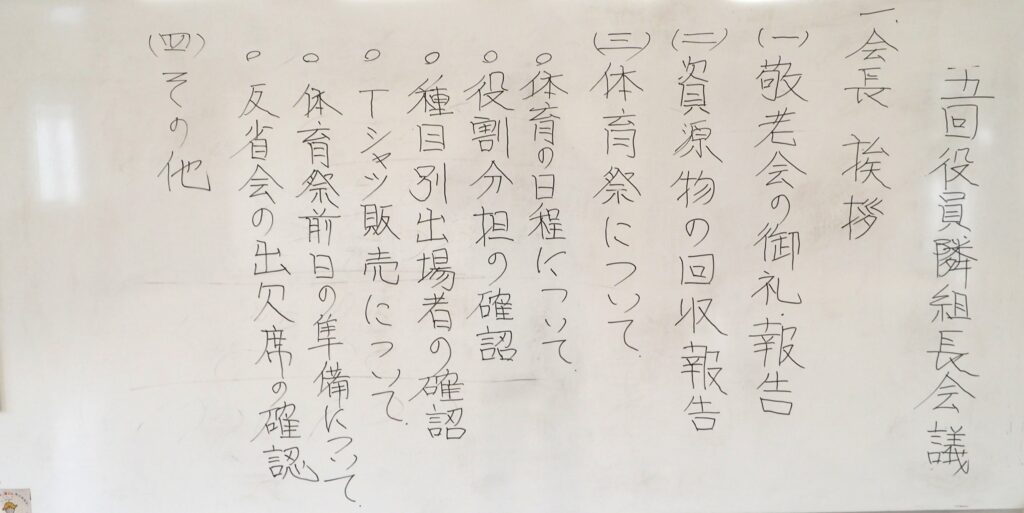 五回役員隣組長会議
一、会長 挨拶
(一)敬老会の御礼.報告
(二)資源物の回収報告
(三)体育祭について.
○体育の日程について.
○役割分担の確認
○種目別出場者の確認
○Tシャツ販売について.
○体育祭前日の準備について.
○反省会の出欠席の確認
(四)その他